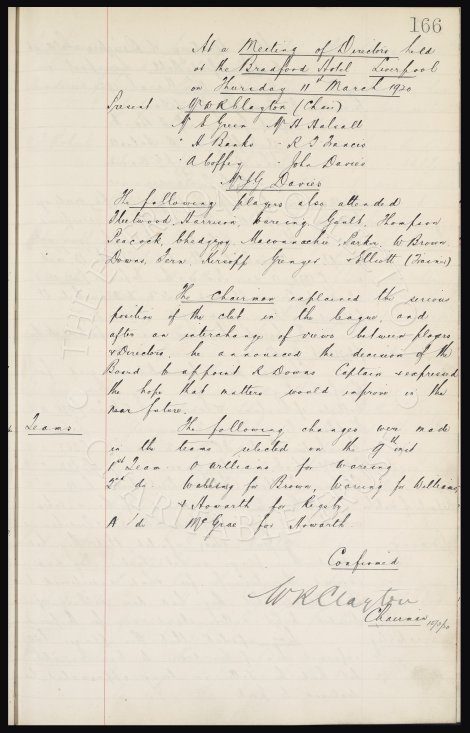 166
At a Meeting of Directors held
at the Bradford Hotel Liverpool
on Thursday 11th March 1920
Present Mr W R Clayton (Chair)
Mr E Green Mr H Halsall
" A Banks " R T Francis
" A Coffey " John Davies
Mr J G Davies
The following players also attended
Fleetwood, Harrison, Wareing, Gault, Thompson
Peacock, Chedgzoy, Maconnachie, Parker, W Brown,
Downs, Fern, Kirsopp Grenyer & Elliott (Trainer)
The Chairman explained the serious
position of the club in the league, and
after an interchange of views between players
& Directors, he announced the decision of the
Board to appoint R Downs Captain & expressed
the hope that matters would improve in the
near future.
Teams. The following changes were made
in the teams selected on the 9th inst
1st Team Williams for Wareing
2nd do Wareing for Williams,
& Howarth for Rigsby
A do McGrae for Howarth
Confirmed
W R Clayton
Chairman